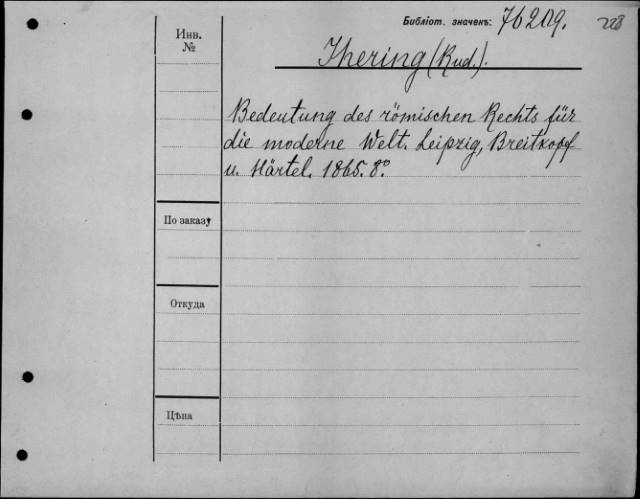 Библіот. значекъ: 76209. 223
Инв.
№
Jhering (Rud.).
Bedeutung des römischen Rechts für
die moderne Welt. Leipzig, Breitkopf
u. Härtel. 1865. 8.º
По заказу
Откуда
Цѣна